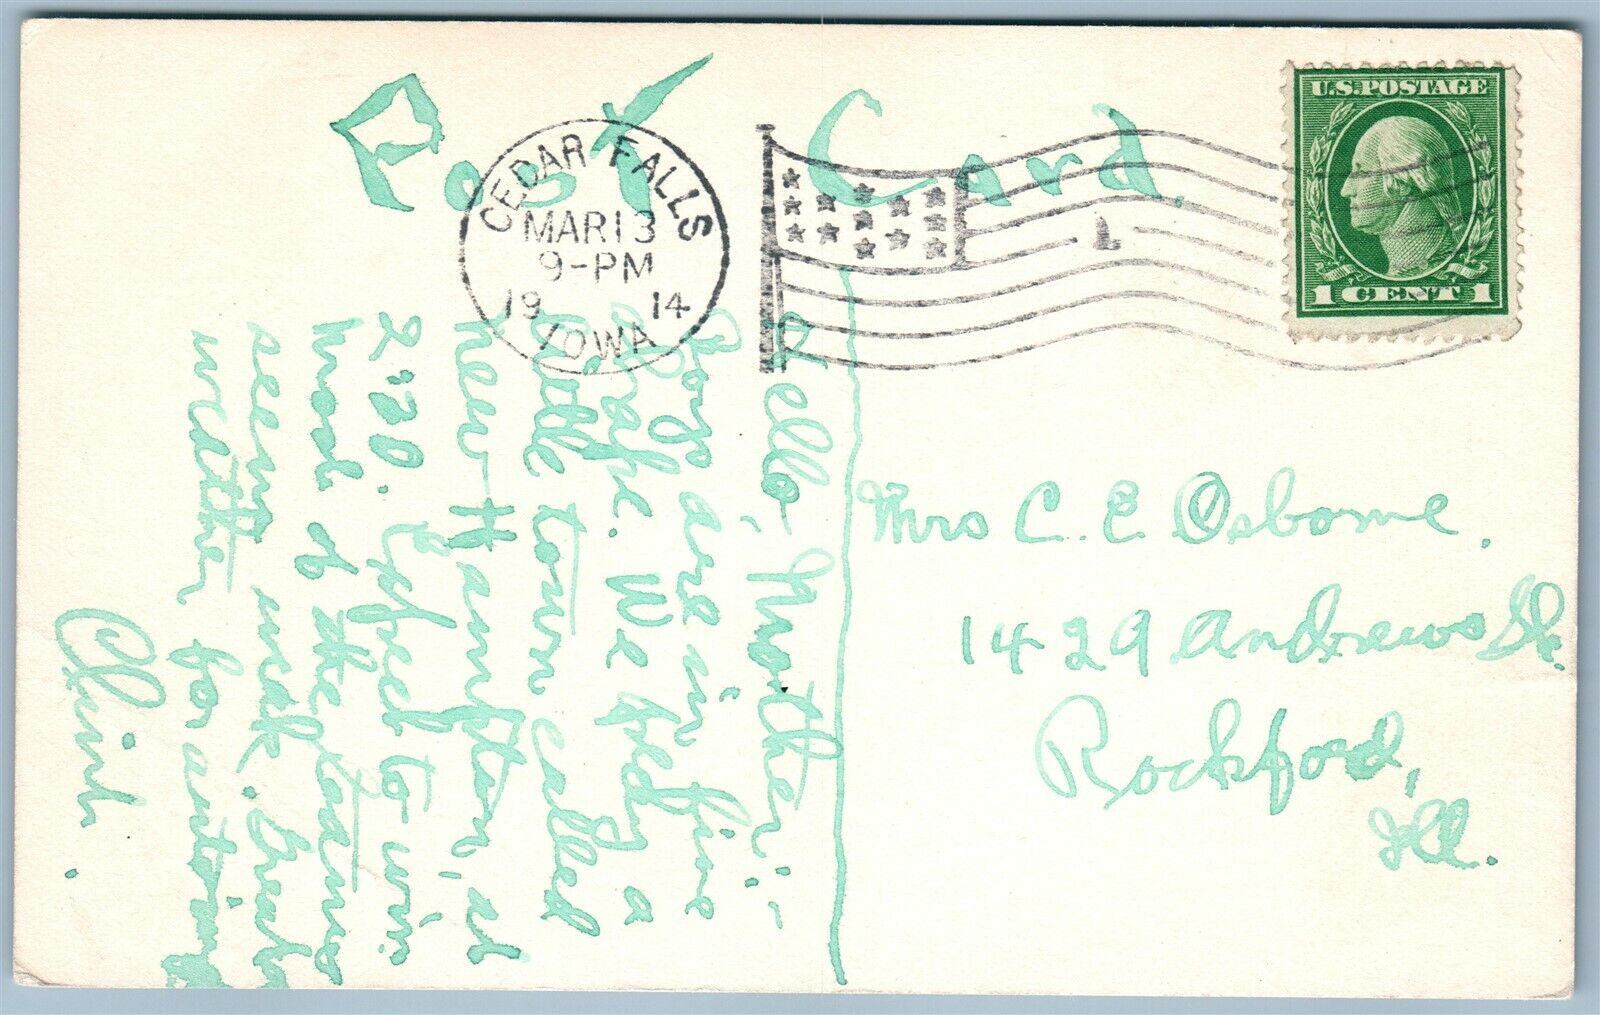 Post Card.
CEDAR FALLS
MAR 13
9-PM
1914
IOWA
1
U.S.POSTAGE
1 CENT 1
Hello, Mother:-
Boys are in fine
shape. We play a
little town called
New Hampton, at
2:20. Expect to win.
Most of the teams
seem weak. Great
weather for autoing
Clint.
Mrs C. E. Osborne.
1429 Andrews St.
Rockford,
Ill.